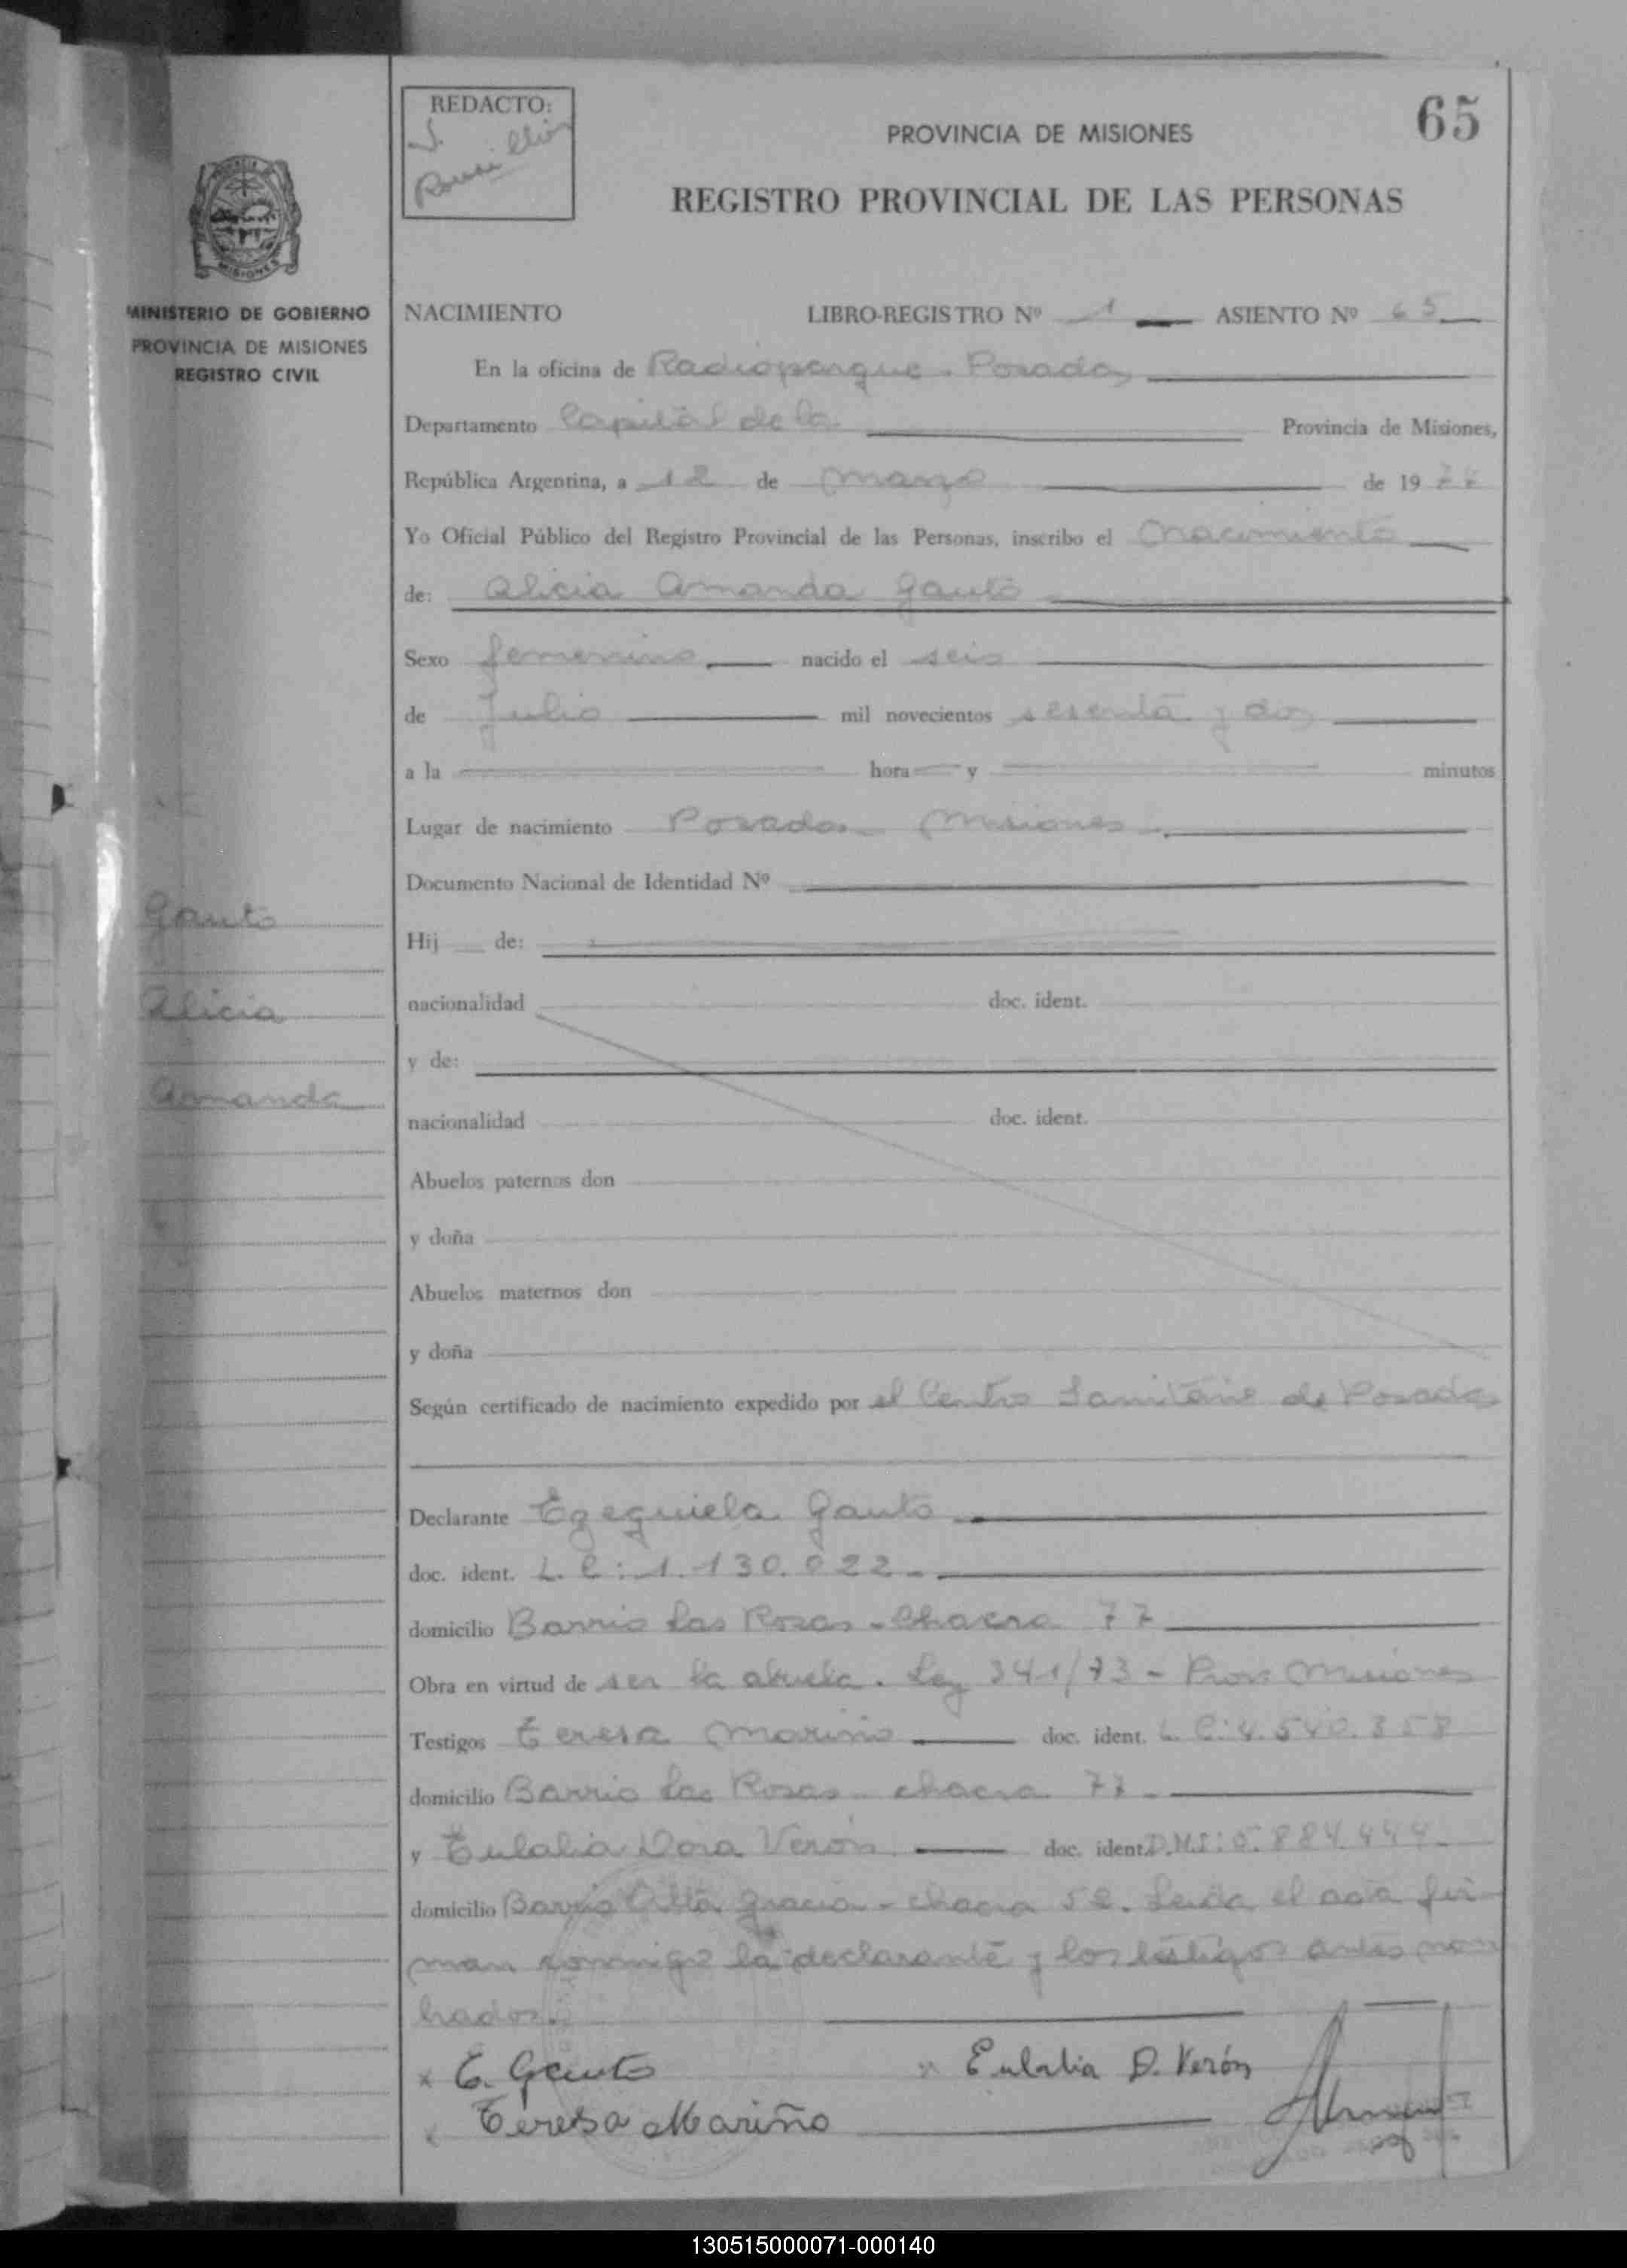 65
REDACTO:
PROVINCIA DE MISIONES
REGISTRO PROVINCIAL DE LAS PERSONAS
MISIONES
MINISTERIO DE GOBIERNO
PROVINCIA DE MISIONES
REGISTRO CIVIL
NACIMIENTO LIBRO-REGISTRO Nº 1 ASIENTO Nº 65
En la oficina de Radioparque - Posadas
Departamento Capital de la Provincia de Misiones,
República Argentina, a 12 de marzo de 19
Yo Oficial Público del Registro Provincial de las Personas, inscribo el nacimiento
de: Alicia Amanda Gauto
Sexo femenino nacido el seis
de Julio mil novecientos sesenta y dos
a la hora y minutos
Lugar de nacimiento Posadas Misiones
Documento Nacional de Identidad Nº
Gauto
Hij de:
Alicia
nacionalidad doc. ident.
y de:
Amanda
nacionalidad doc. ident.
Abuelos paternos don
y doña
Abuelos maternos don
y doña
Según certificado de nacimiento expedido por el Centro Sanitario de Posadas
Declarante Ezequiela Gauto
doc. ident. L.C: 1.130.022-
domicilio Barrio Las Rosas - Chacra 77
Obra en virtud de ser la abuela. Ley 341/73 - Prov. Misiones
Testigos Teresa Mariño doc. ident. L.C: 4.540.358
domicilio Barrio Las Rosas - chacra 77-
y Eulalia Dora Verón doc. ident. D.N.I: 5.884.444-
domicilio Barrio Alta Gracia - chacra 52. Leída el acta fir-
man conmigo la declarante y los testigos antes nom
brados.
x E. Gauto x Eulalia D. Verón
x Teresa Mariño
130515000071-000140